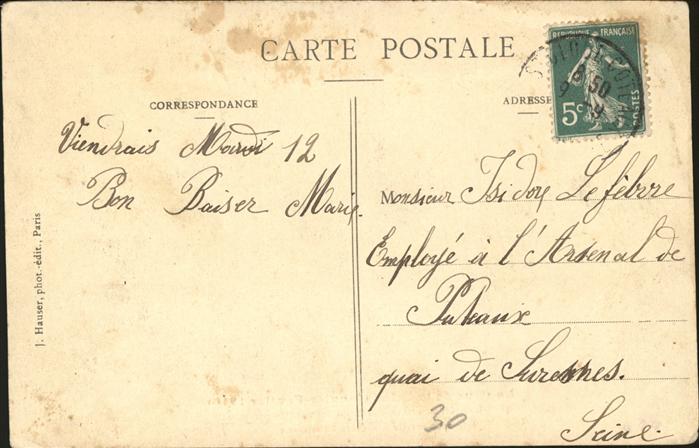 CARTE POSTALE
CORRESPONDANCE
Viendrais Mardi 12
Bon Baiser Marie.
J. Hauser, phot.-édit., Paris
ADRESSE
REPUBLIQUE FRANÇAISE
5c
POSTES
Monsieur Isidore Lefèbvre
Employé à l'Arsenal de
Puteaux
quai de Suresnes.
Seine.
30